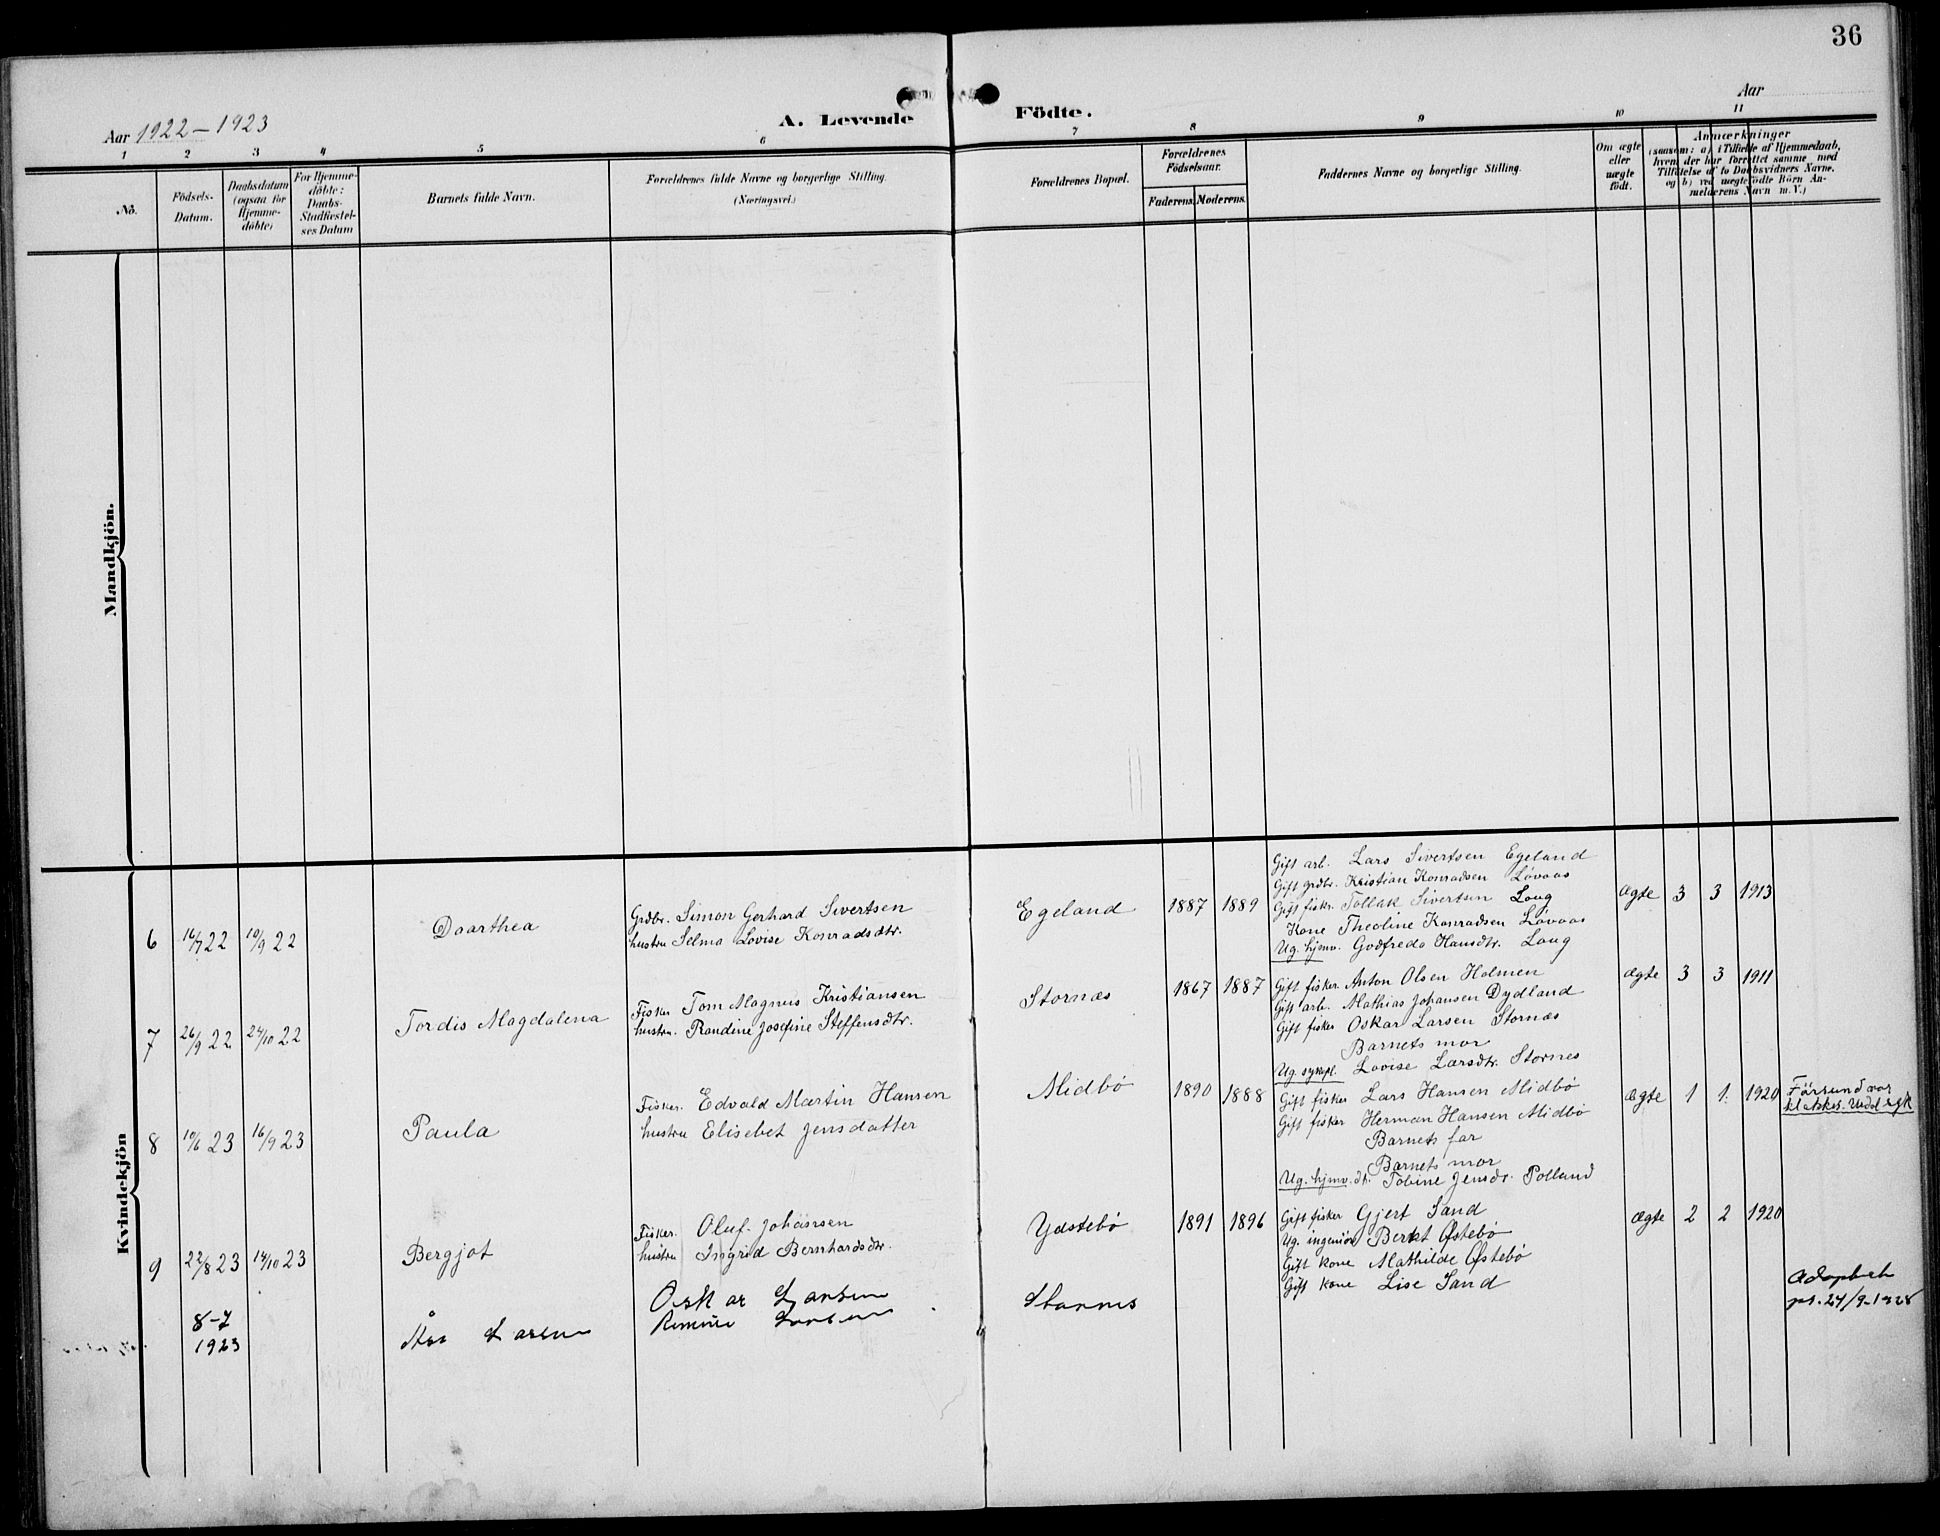 36
Aar 1922-1923
A. Levende Födte.
Aar
1 2 3 4 5 6 7 8 9 10 11
No.
Födsels-
Datum.
Daabsdatum
(ogsaa for
Hjemme-
döbte)
For Hjemme-
döbte:
Daabs-
Stadfæstel-
ses Datum
Barnets fulde Navn.
Forældrenes fulde Navne og borgerlige Stilling.
(Næringsvei.)
Forældrenes Bopæl.
Forældrenes
Födselsaar.
Faderens. Moderens.
Faddernes Navne og borgerlige Stilling.
Om ægte
eller
uægte
födt.
Anmærkninger
(saasom: a) i Tilfælde af Hjemmedaab,
hvem der har forrettet samme, med
Tilføielse af to Daabsvidners Navne,
og b) ved uægtefödte Börn An-
melderens Navn m. V.)
Mandkjön.
Kvindekjön
6 16/7 22 10/9 22
Daarthea
Grdbr. Simon Gerhard Sivertsen
hustru Selma Lovise Konradsdtr.
Egeland
1887 1889
Gift arb. Lars Sivertsen Egeland
Gift grdbr. Kristian Konradsen Lövaas
Gift fisker Tollak Sivertsen Loug
Kone Theoline Konradsen Lövaas
Ug. hjmv. Godfreda Hansdtr. Loug
Ægte 3 3 1913
7 26/9 22 24/10 22
Tordis Magdalena
Fisker Tom Magnus Kristiansen
hustru. Randine Josefine Steffensdtr.
Stornæs
1867 1887
Gift fisker Anton Olsen Holmen
Gift arb. Mathias Johansen Dydland
Gift fisker Oskar Larsen Stornæs
Barnets mor
Ug. sympl. Lovise Larsdtr. Stornes
Ægte 3 3 1911
8 10/6 23 16/9 23
Paula
Fisker. Edvald Martin Hansen
hustru Elisebet Jensdatter
Midbø
1890 1888
Gift fisker Lars Hansen Midbø
Gift fisker Herman Hansen Midbø
Barnets far
Barnets mor
Ug. hjmv. dt. Tobine Jensdr. Polland
Ægte 1 1. 1920
9 22/8 23 14/10 23
Bergjot
Fisker. Oluf Johansen
hustru Ingrid Bernhardsdtr.
Ydstebø
1891 1896
Gift fisker Gjert Sand
Ug. ingeniør Berkt Østebø
Gift kone Mathilde Østebø
Gift kone Lise Sand
Ægte 2 2 1920
8-7
1923
Larsen
Oskar Larsen
Larsen
Stornes
24/9-1928